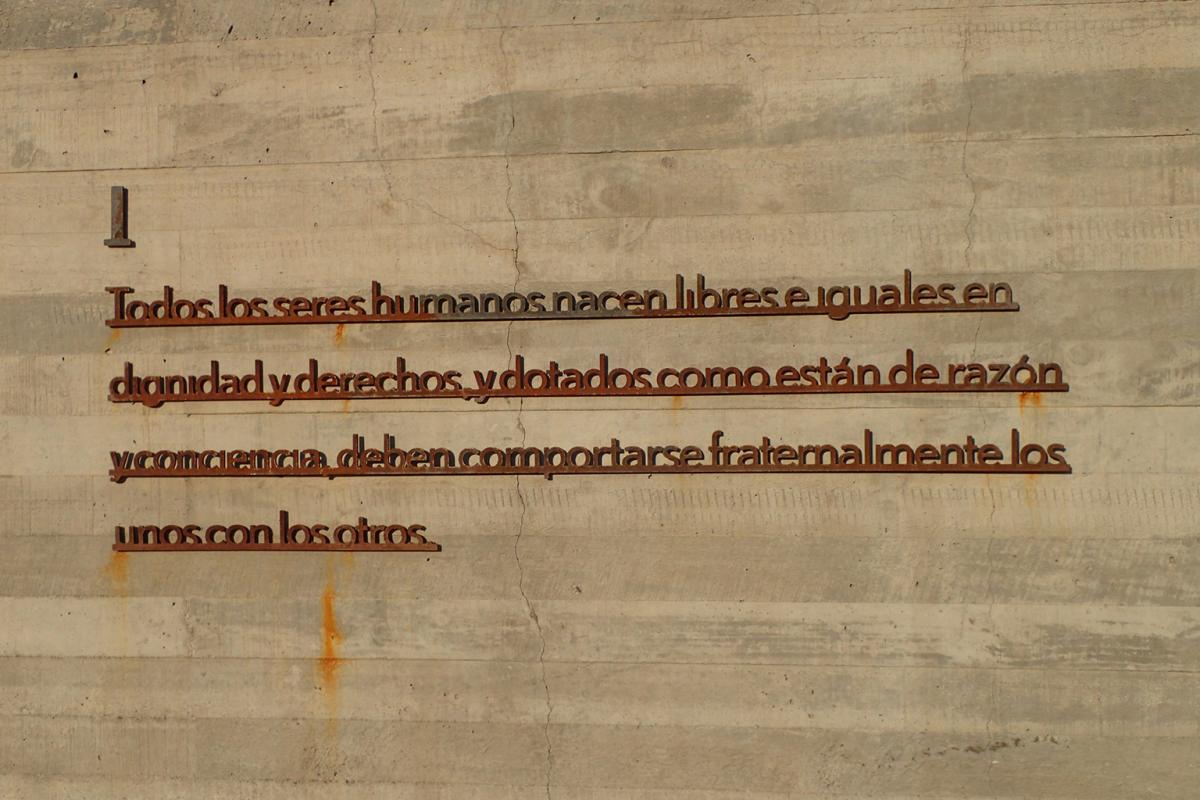 1
Todos los seres humanos nacen libres e iguales en
dignidad y derechos, y dotados como están de razón
y conciencia, deben comportarse fraternalmente los
unos con los otros.